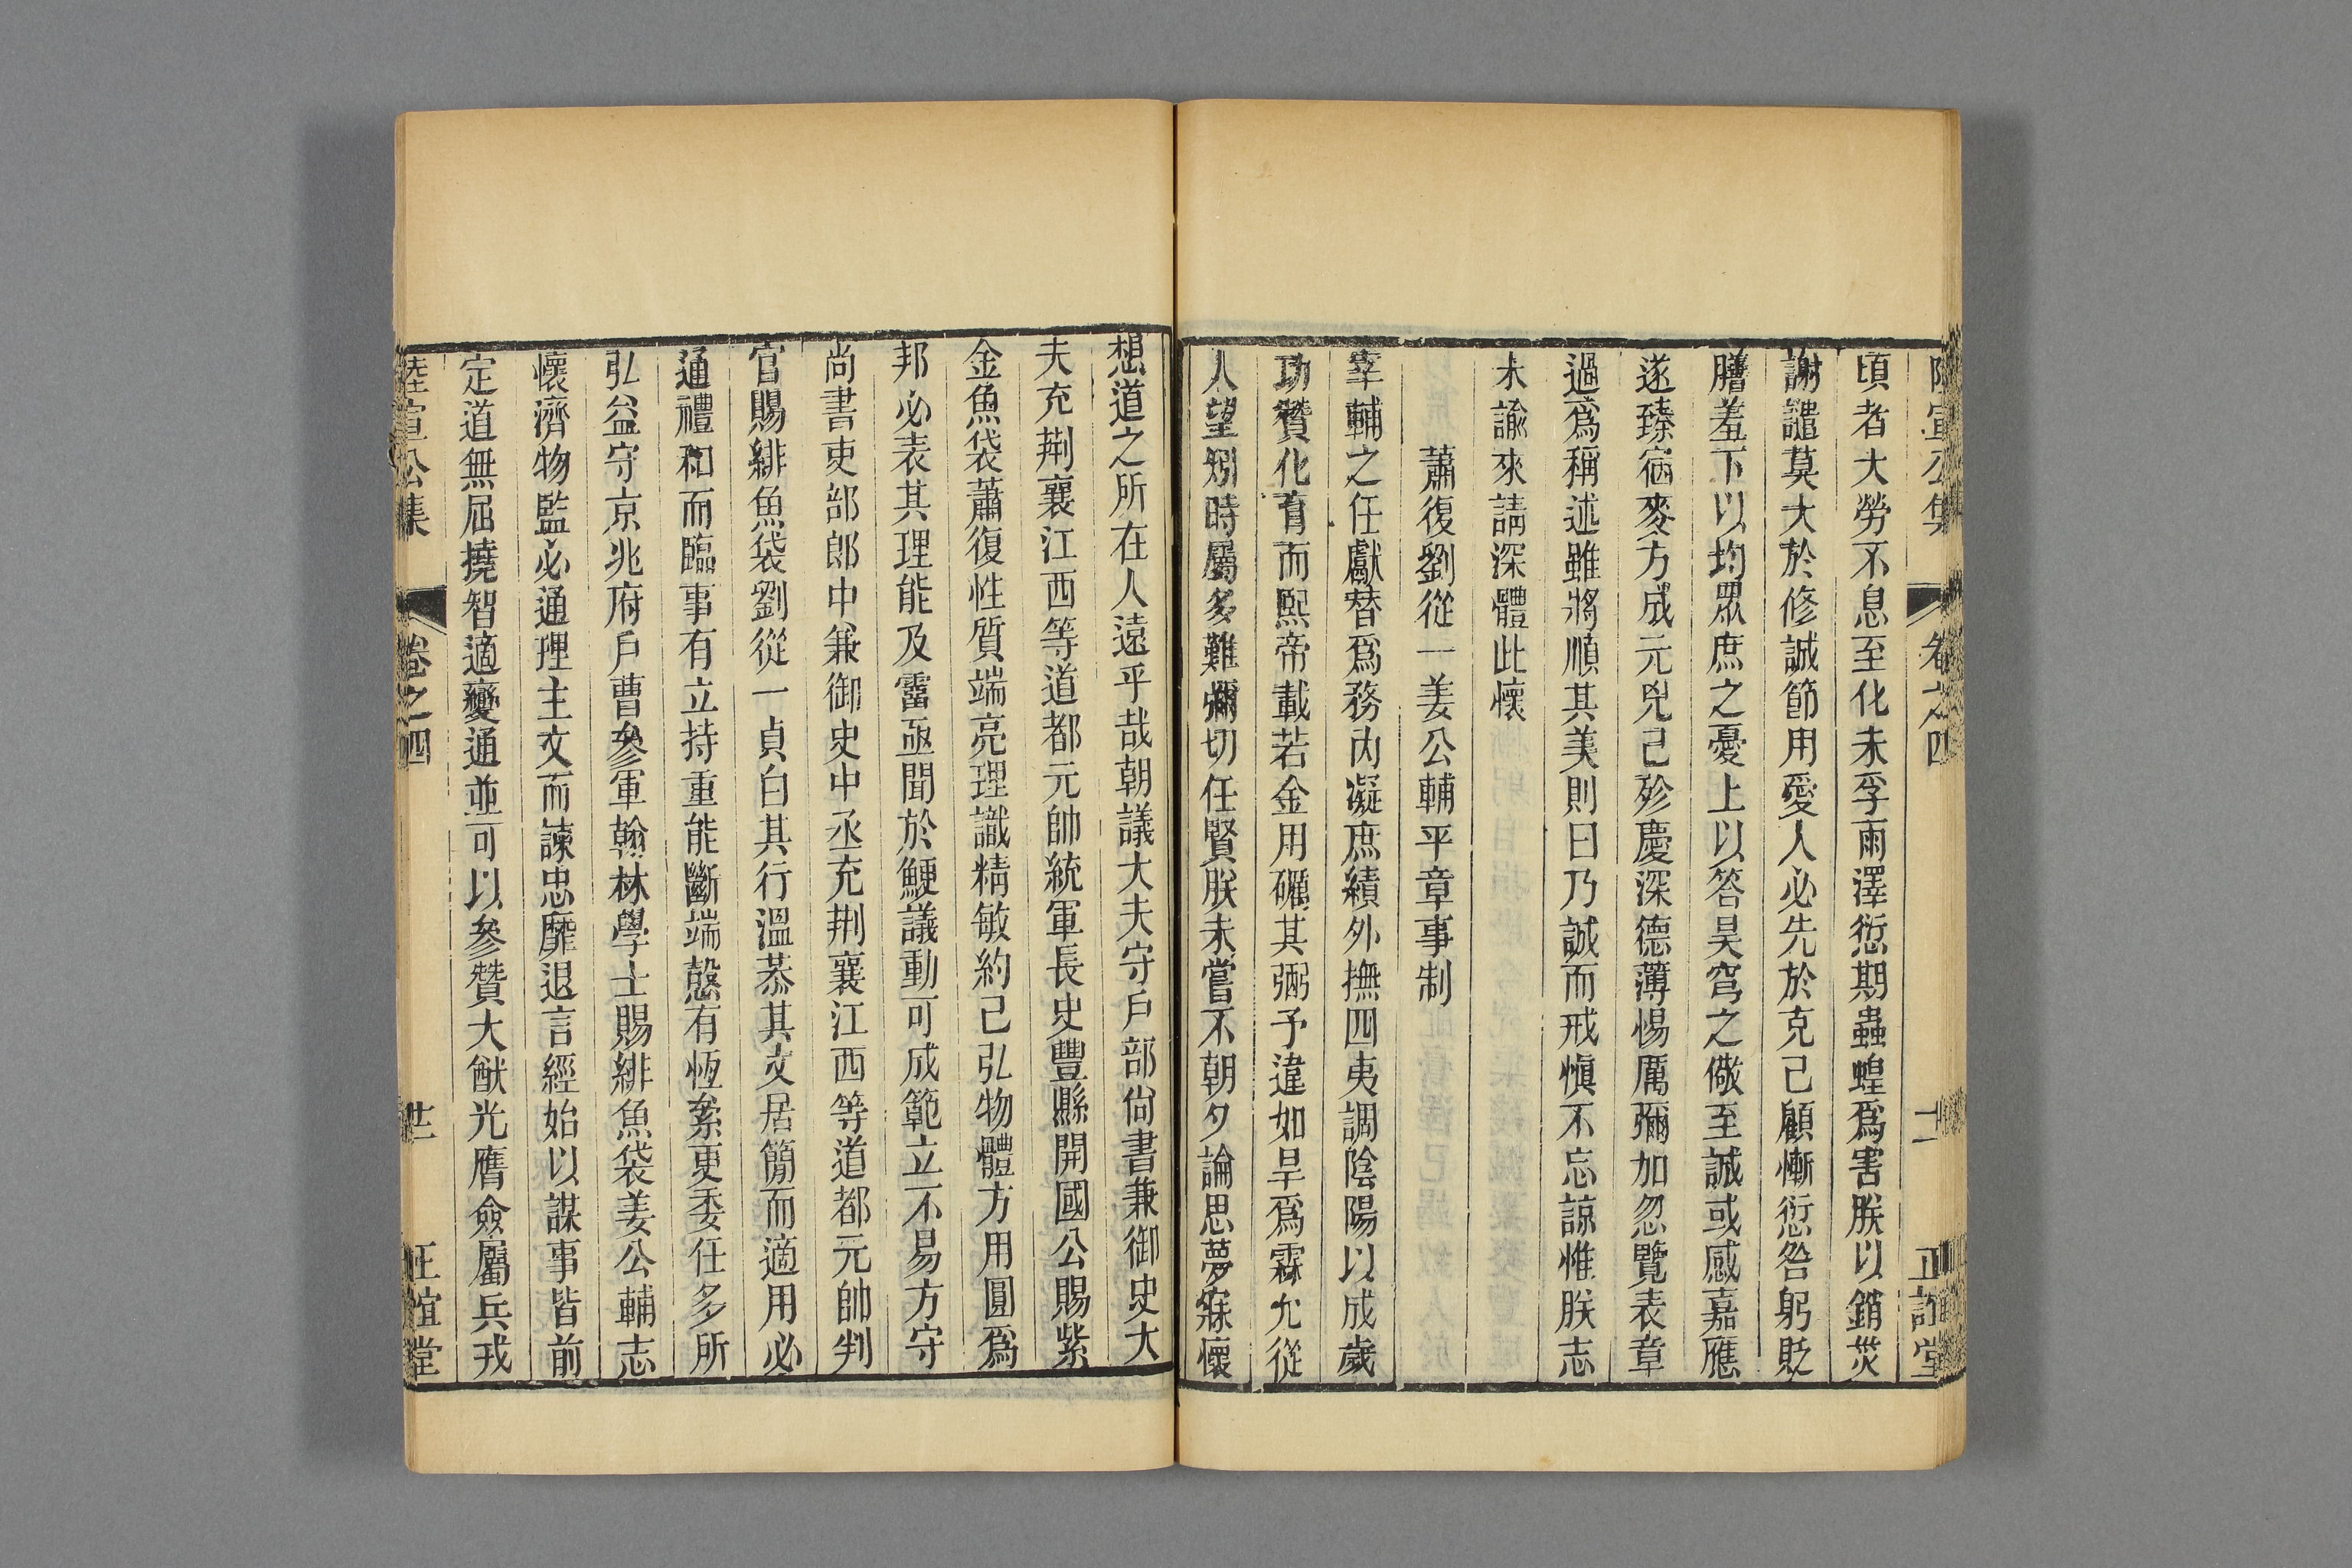 陸宣公集 卷之四 十一 正誼堂
頃者大勞不息至化未孚雨澤愆期蟲蝗爲害朕以銷災
謝譴莫大於修誠節用愛人必先於克己顧慚愆咎躬貶
膳羞下以均眾庶之憂上以答昊穹之儆至誠或感嘉應
遂臻宿麥方成元兇已殄慶深德薄惕厲彌加忽覽表章
過爲稱述雖將順其美則曰乃誠而戒慎不忘諒惟朕志
未諭來請深體此懷
蕭復劉從一姜公輔平章事制
宰輔之任獻替爲務內凝庶績外撫四夷調陰陽以成歲
功贊化育而熙帝載若金用礪其弼予違如旱爲霖允從
人望矧時屬多難彌切任賢朕未嘗不朝夕論思夢寐懷
想道之所在人遠乎哉朝議大夫守戶部尚書兼御史大
夫充荆襄江西等道都元帥統軍長史豐縣開國公賜紫
金魚袋蕭復性質端亮理識精敏約己弘物體方用圓爲
邦必表其理能及霤亟聞於鯁議動可成範立不易方守
尚書吏部郎中兼御史中丞充荆襄江西等道都元帥判
官賜緋魚袋劉從一貞白其行溫恭其文居簡而適用必
通禮和而臨事有立持重能斷端愨有恆絫更委任多所
弘益守京兆府戶曹參軍翰林學士賜緋魚袋姜公輔志
懷濟物監必通理主文而諫忠靡退言經始以謀事皆前
定道無屈撓智適變通並可以參贊大猷光膺僉屬兵戎
陸宣公集 卷之四 廿一 正誼堂